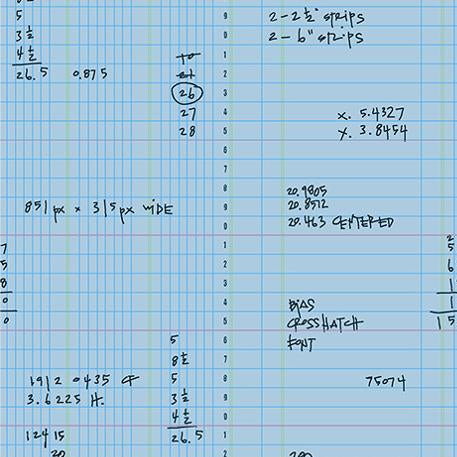 5
3 ½
4 ½
26.5 0.875
26
27
28
2 - 2 ½" strips
2 - 6" strips
x. 5.4327
y. 3.8454
851px x 315px WIDE
20.9805
20.8512
20.463 CENTERED
7
5
8
0
0
2
5
6
1
1
15
BIAS
CROSSHATCH
FONT
5
8 ½
5
3 ½
4 ½
26.5
1912 0435 CF
3.6225 H.
75074
12415